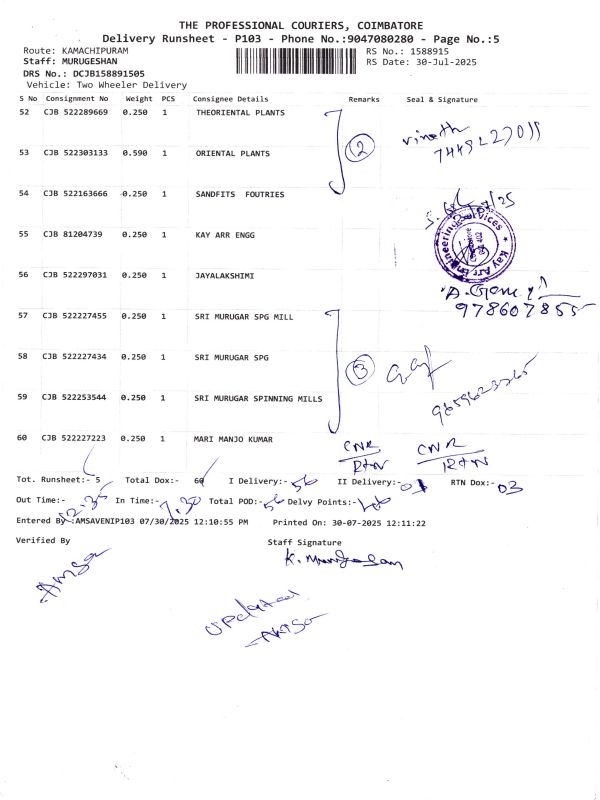 THE PROFESSIONAL COURIERS, COIMBATORE
Delivery Runsheet - P103 - Phone No.:9047080280 - Page No.:5
Route: KAMACHIPURAM
RS No.: 1588915
Staff: MURUGESHAN
RS Date: 30-Jul-2025
DRS No.: DCJB158891505
Vehicle: Two Wheeler Delivery
S No Consignment No Weight PCS Consignee Details Remarks Seal & Signature
52 CJB 522289669 0.250 1 THEORIENTAL PLANTS
vineeth
2
53 CJB 522303133 0.590 1 ORIENTAL PLANTS
54 CJB 522163666 0.250 1 SANDFITS FOUTRIES
55 CJB 81204739 0.250 1 KAY ARR ENGG
Kay Arr Engineering Services
56 CJB 522297031 0.250 1 JAYALAKSHIMI
978607855
57 CJB 522227455 0.250 1 SRI MURUGAR SPG MILL
58 CJB 522227434 0.250 1 SRI MURUGAR SPG
3
59 CJB 522253544 0.250 1 SRI MURUGAR SPINNING MILLS
60 CJB 522227223 0.250 1 MARI MANJO KUMAR
CNR CNR
RTN RTN
Tot. Runsheet:- 5 Total Dox:- 60 I Delivery:- 56 II Delivery:- 01 RTN Dox:- 03
Out Time:- 12.35 In Time:- 7.30 Total POD:- 56 Delvy Points:-
Entered By :AMSAVENIP103 07/30/2025 12:10:55 PM Printed On: 30-07-2025 12:11:22
Verified By Staff Signature
K. Murugesan
Amsa
updated
Amsa